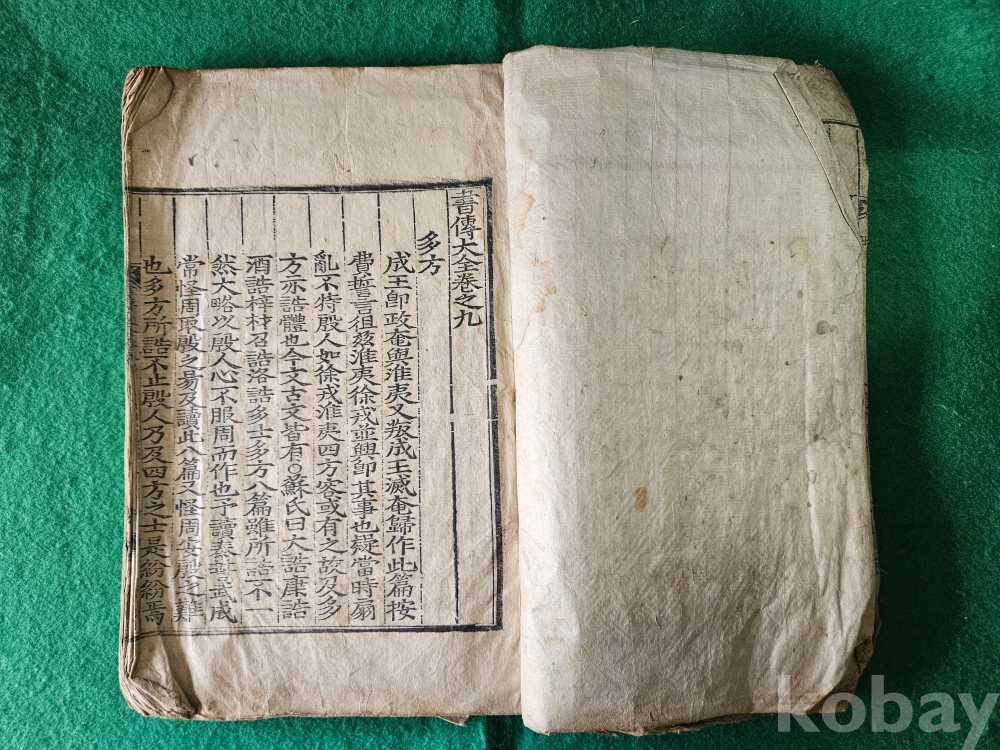 書傳大全卷之九
多方
成王卽政奄與淮夷又叛成王滅奄歸作此篇按
費誓言徂玆淮夷徐戎並興卽其事也疑當時扇
亂不特殷人如徐戎淮夷四方容或有之故及多
方亦誥體也今文古文皆有○蘇氏曰大誥康誥
酒誥梓材召誥洛誥多士多方八篇雖所誥不一
然大略以殷人心不服周而作也予讀泰誓武成
常怪周取殷之易及讀此八篇又怪周安殷之難
也多方所誥不止殷人乃及四方之士是紛紛焉
kobay